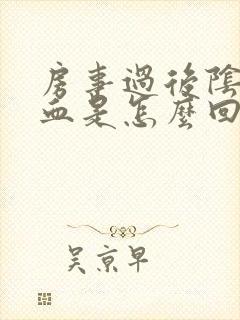 房事過後陰
血是怎麼回
吳京早